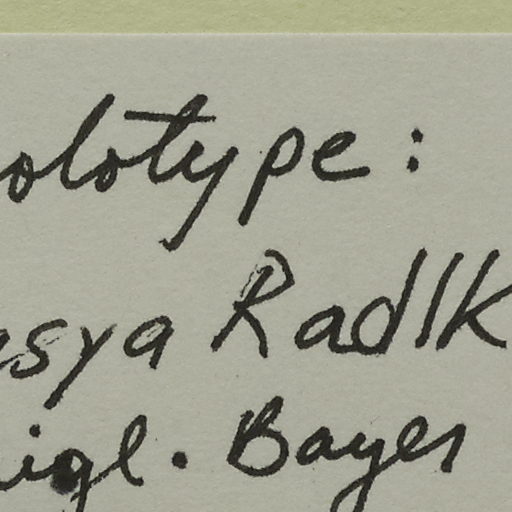 olotype:
esya Radlk
igl. Bayer